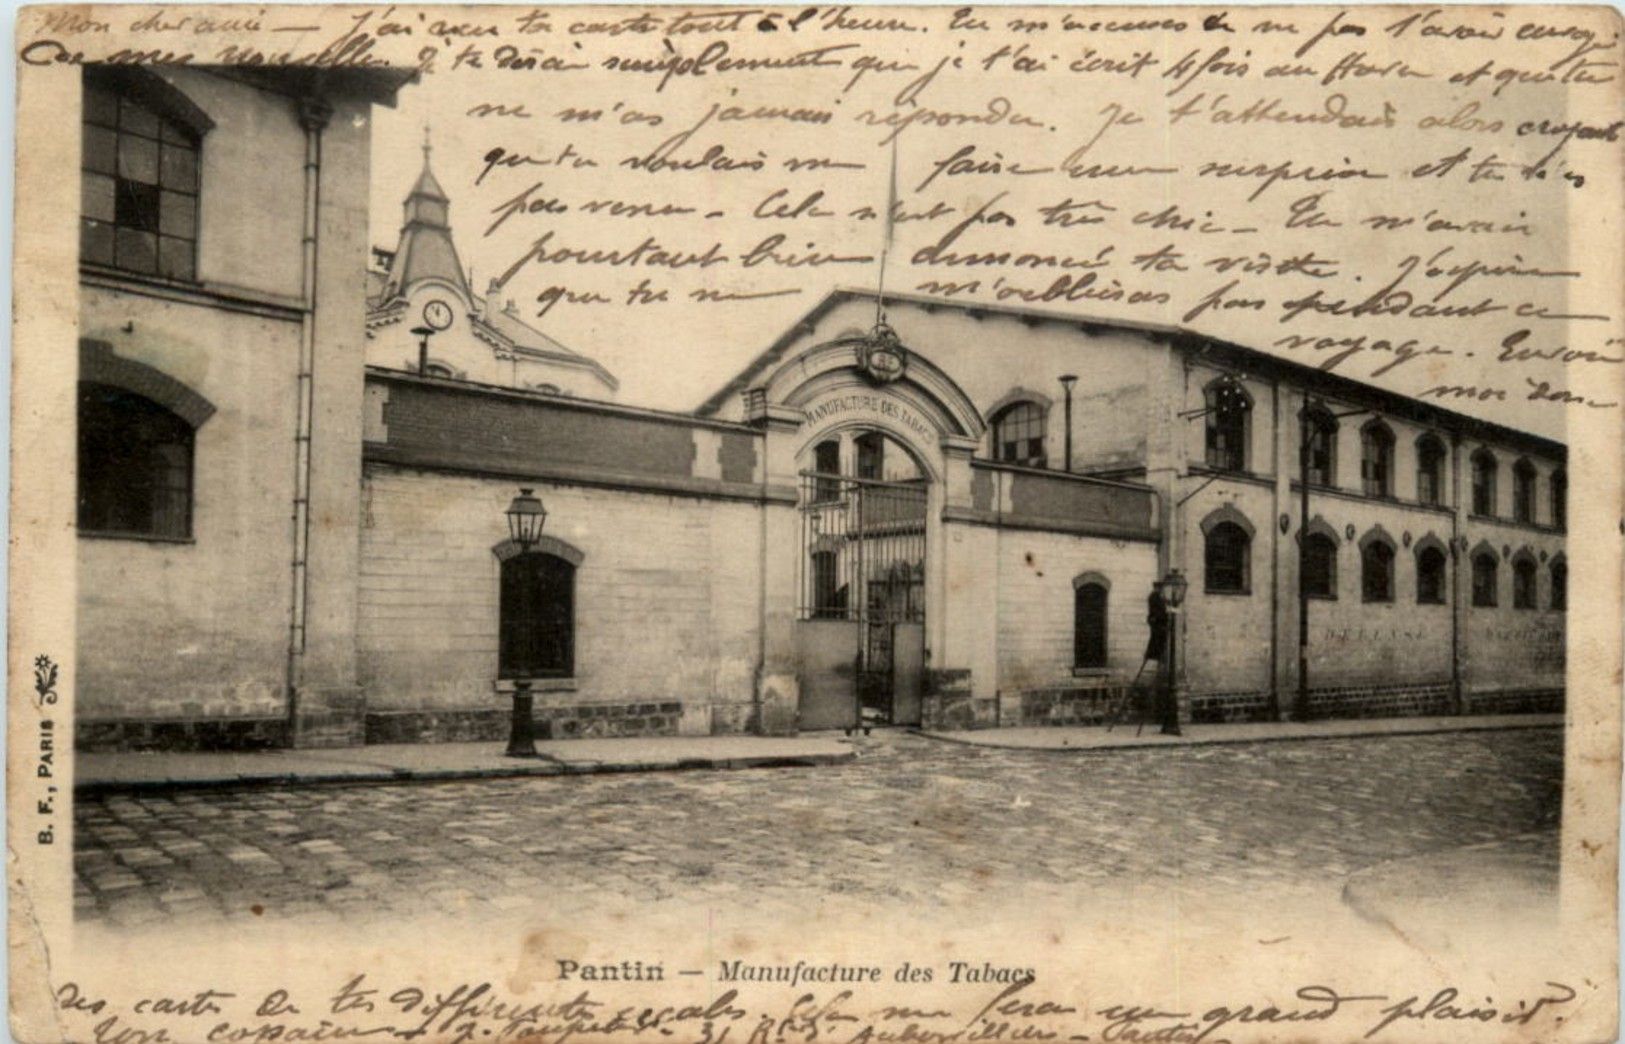 Mon cher ami — J'ai reçu ta carte tout à l'heure. Tu m'accuses de ne pas t'avoir envoyé
de mes nouvelles. Je te dirai simplement que je t'ai écrit 4 fois au Havre et que tu
ne m'as jamais répondu. Je t'attendais alors croyant
que tu voulais me faire une surprise et tu n'es
pas venu — Cela n'est pas très chic — Tu m'avais
pourtant bien annoncé ta visite. J'espère
que tu ne m'oublieras pas pendant ce
voyage. Envoie
moi donc
MANUFACTURE DES TABACS
DEFENSE
B. F., PARIS
Pantin — Manufacture des Tabacs
des cartes de tes différentes escales. Cela me fera un grand plaisir.
Ton copain — 31 R. d'Aubervilliers — Pantin